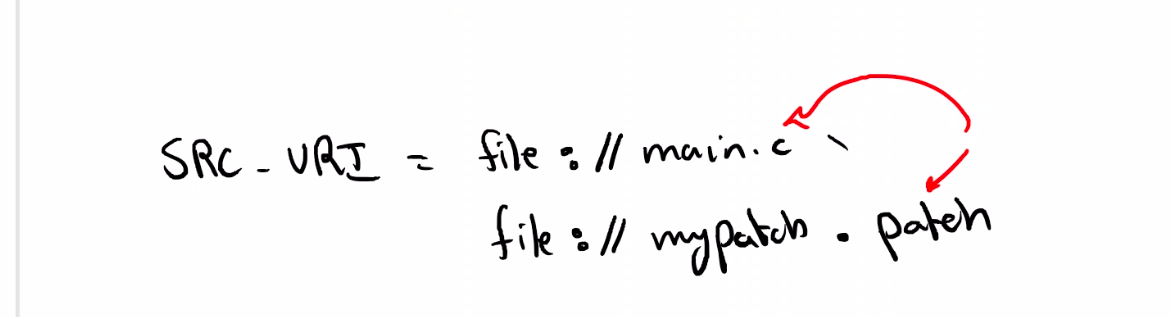 SRC_URI = file://main.c \
file://mypatch.patch